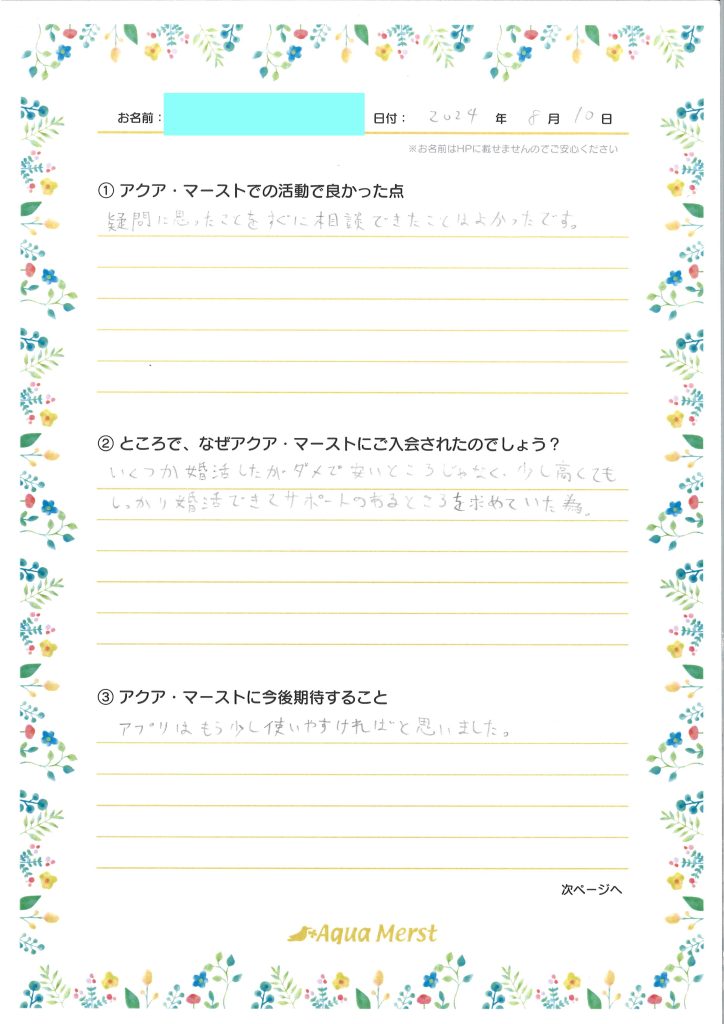 お名前： 日付： 2024 年 8 月 10 日
※お名前はHPに載せませんのでご安心ください
① アクア・マーストでの活動で良かった点
疑問に思ったことをすぐに相談できたことはよかったです。
② ところで、なぜアクア・マーストにご入会されたのでしょう？
いくつか婚活したがダメで安いところじゃなく、少し高くても
しっかり婚活できてサポートのあるところを求めていた為。
③ アクア・マーストに今後期待すること
アプリはもう少し使いやすければと思いました。
次ページへ
Aqua Merst